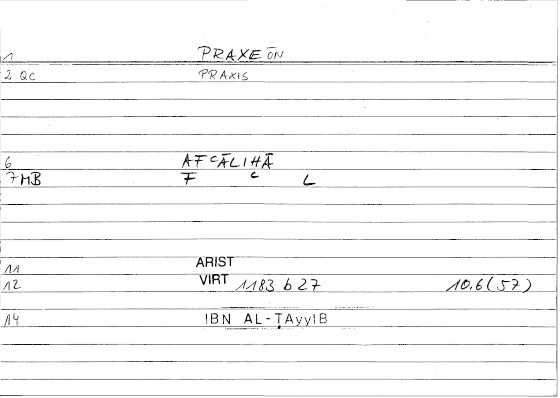 1 PRAXEŌN
2 QC PRAXIS
6 AFᶜĀLIHĀ
7 HB F ᶜ L
11 ARIST
12 VIRT 1183 b 27 10.6(57)
14 IBN AL-ṬAyyIB